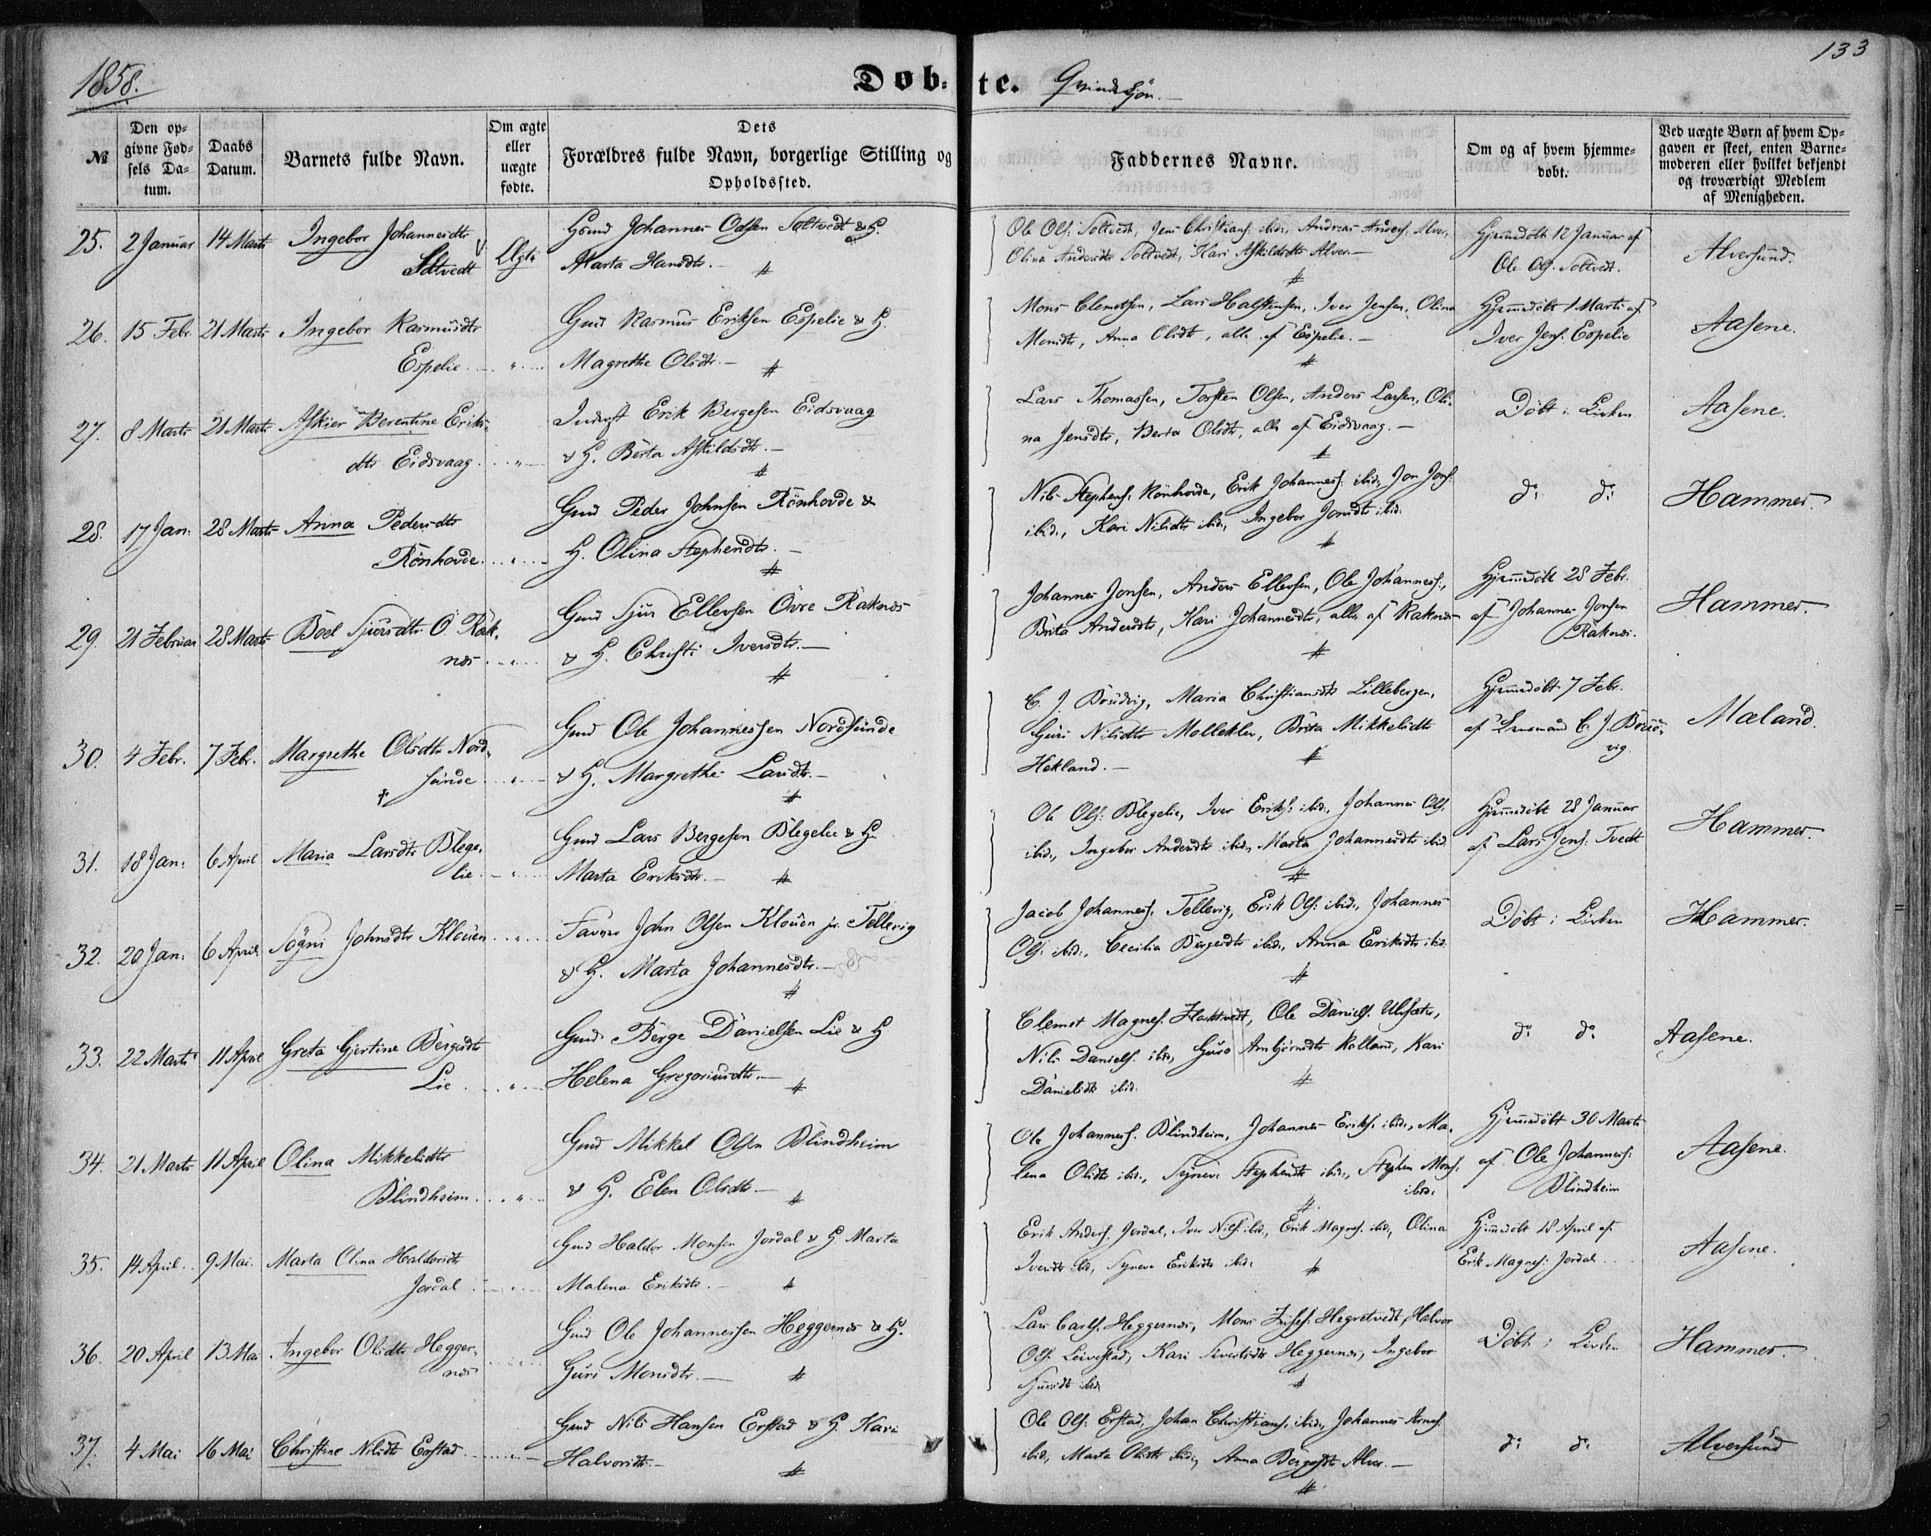 1858.
Døb-te. Qvindekjøn.
133
№
Den op-
givne Fød-
sels Da-
tum.
Daabs
Datum.
Barnets fulde Navn.
Om ægte
eller
uægte
fødte.
Dets
Forældres fulde Navn, borgerlige Stilling og
Opholdssted.
Faddernes Navne.
Om og af hvem hjemme-
døbt.
Ved uægte Børn af hvem Op-
gaven er skeet, enten Barne-
moderen eller hvilket bekjendt
og troværdigt Medlem
af Menigheden.
25. 2 Januar 14 Marts Ingebor Johannesdtr
Soltvedt Ægte
Gmd Johannes Olsen Soltvedt & H.
Marta Hansdtr.
Ole Ols: Soltvedt, Jens Christians: ibid:, Andreas Anders: Alver,
Olina Andersdtr Soltvedt, Kari Askildsdtr Alver
Hjemmedøbt 12 Januar af
Ole Ols. Soltvedt.
Alversund.
26. 15 Febr. 21 Marts Ingebor Rasmusdtr
Espelie "
Gmd Rasmus Eriksen Espelie & H.
Magrethe Olsdtr.
Mons Clemetsen, Lars Halstensen, Iver Jensen, Olina
Monsdtr, Anna Olsdtr, alle af Espelie.
Hjemmedøbt 1 Marts af
Iver Jens. Espelie
Aasene.
27. 8 Marts 21 Marts Askier Berentine Eriks-
dtr Eidsvaag "
Indest Erik Bergesen Eidsvaag
& H. Berta Askildsdtr.
Lars Thomassen, Torsten Olsen, Anders Larsen, Oli-
na Jensdtr, Berta Olsdtr, alle af Eidsvaag.
Døbt i Kirken
Aasene.
28. 17 Jan: 28 Marts Anna Pedersdtr
Rönhovde "
Gmd Peder Johnsen Rönhovde &
H. Olina Stephensdtr.
Nils Stephens: Rönhovde, Erik Johanness: ibid:, Jon Jons:
ibid:, Kari Nilsdtr ibid:, Ingebor Jonsdtr ibid.
do do
Hammer.
29. 21 Februar 28 Marts Boel Sjursdtr Ö. Rak-
næs "
Gmd Sjur Ellevsen Övre Raknes
& H. Christi Iversdtr.
Johannes Jonsen, Anders Ellevsen, Ole Johanness:,
Brita Andersdtr, Kari Johannesdtr, alle af Raknes
Hjemmedøbt 28 Febr.
af Johannes Jonsen
Raknes.
Hammer.
30. 4 Febr. 7 Febr. Margrethe Olsdtr Nord-
sunde "
Gmd Ole Johannessen Nordsunde
& H. Margrethe Larsdtr.
C. J. Brudvig, Maria Christiansdtr Lillebergen,
Guri Nilsdtr Mollekler, Brita Mikkelsdtr
Hekland.
Hjemmedøbt 7 Febr.
af Lensmand C. J. Brud-
vig.
Mæland.
31. 18 Jan: 6 April Maria Larsdtr Blege-
lie "
Gmd Lars Bergesen Blegelie & H.
Marta Eriksdtr.
Ole Ols: Blegelie, Iver Eriks: ibid:, Johannes Ols:
ibid:, Ingebor Andersdtr ibid, Marta Johannesdtr ibid
Hjemmedøbt 28 Januar
af Lars Jens: Tvedt
Hammer.
32. 20 Jan: 6 April. Sögni Johnsdtr Klouen "
John Olsen Klouen Tellevig
& H. Marta Johannesdtr.
Jacob Johanness. Tellevig, Erik Ols: ibid:, Johannes
Ols: ibid:, Cecilia Bergesdtr ibid:, Anna Eriksdtr ibid
Døbt i Kirken
Hammer.
33. 22 Marts 11 April Greta Gjertine Bergesdtr
Lie "
Gmd. Berge Danielsen Lie & H
Helena Gregoriusdtr.
Clemet Magnes. Flaktvedt, Ole Daniels. Ulsæter,
Nils Daniels. ibid, Guro Ambjørnsdtr Rolland, Kari
Danielsdtr ibid:
do do
Aasene.
34. 21 Marts 11 April Olina Mikkelsdtr
Blindheim "
Gmd Mikkel Olsen Blindheim
& H. Elen Olsdtr
Ole Johanness. Blindheim, Johannes Eriks: ibid:, Ma-
lena Olsdtr ibid:, Synneve Stephensdtr ibid:, Stephen Mons:
ibid.
Hjemmedøbt 30 Marts
af Ole Johanness:
Blindheim
Aasene.
35. 14 April. 9 Mai. Marta Olina Haldorsdtr
Jordal "
Gmd Haldor Monsen Jordal & H Marta
Malena Eriksdtr.
Erik Anders. Jordal, Iver Nils: ibid, Erik Magnes. ibid, Olina
Iversdtr ibid, Synneve Eriksdtr ibid:
Hjemmedøbt 18 April af
Erik Magnes: Jordal
Aasene.
36. 20 April 13 Mai Ingebor Olsdtr Hegger-
næs
Gmd Ole Johannessen Heggernes & H.
Guri Monsdtr.
Lars Carls. Heggernes, Mons Hegretvedt, Halvor
Ols: Leirestad, Kari Sivertsdtr Heggernes, Ingebor
Sjursdtr ibid
Døbt i Kirken
Hammer.
37. 4 Mai 16 Mai Christine Nilsdtr Erstad "
Gmd Nils Hansen Erstad & H. Kari
Halvorsdtr.
Ole Ols: Erstad, Johan Christians. ibid:, Johannes Arnes:
ibid, Marta Olsdtr ibid, Anna Bergesdtr Alver.
do do
Alversund